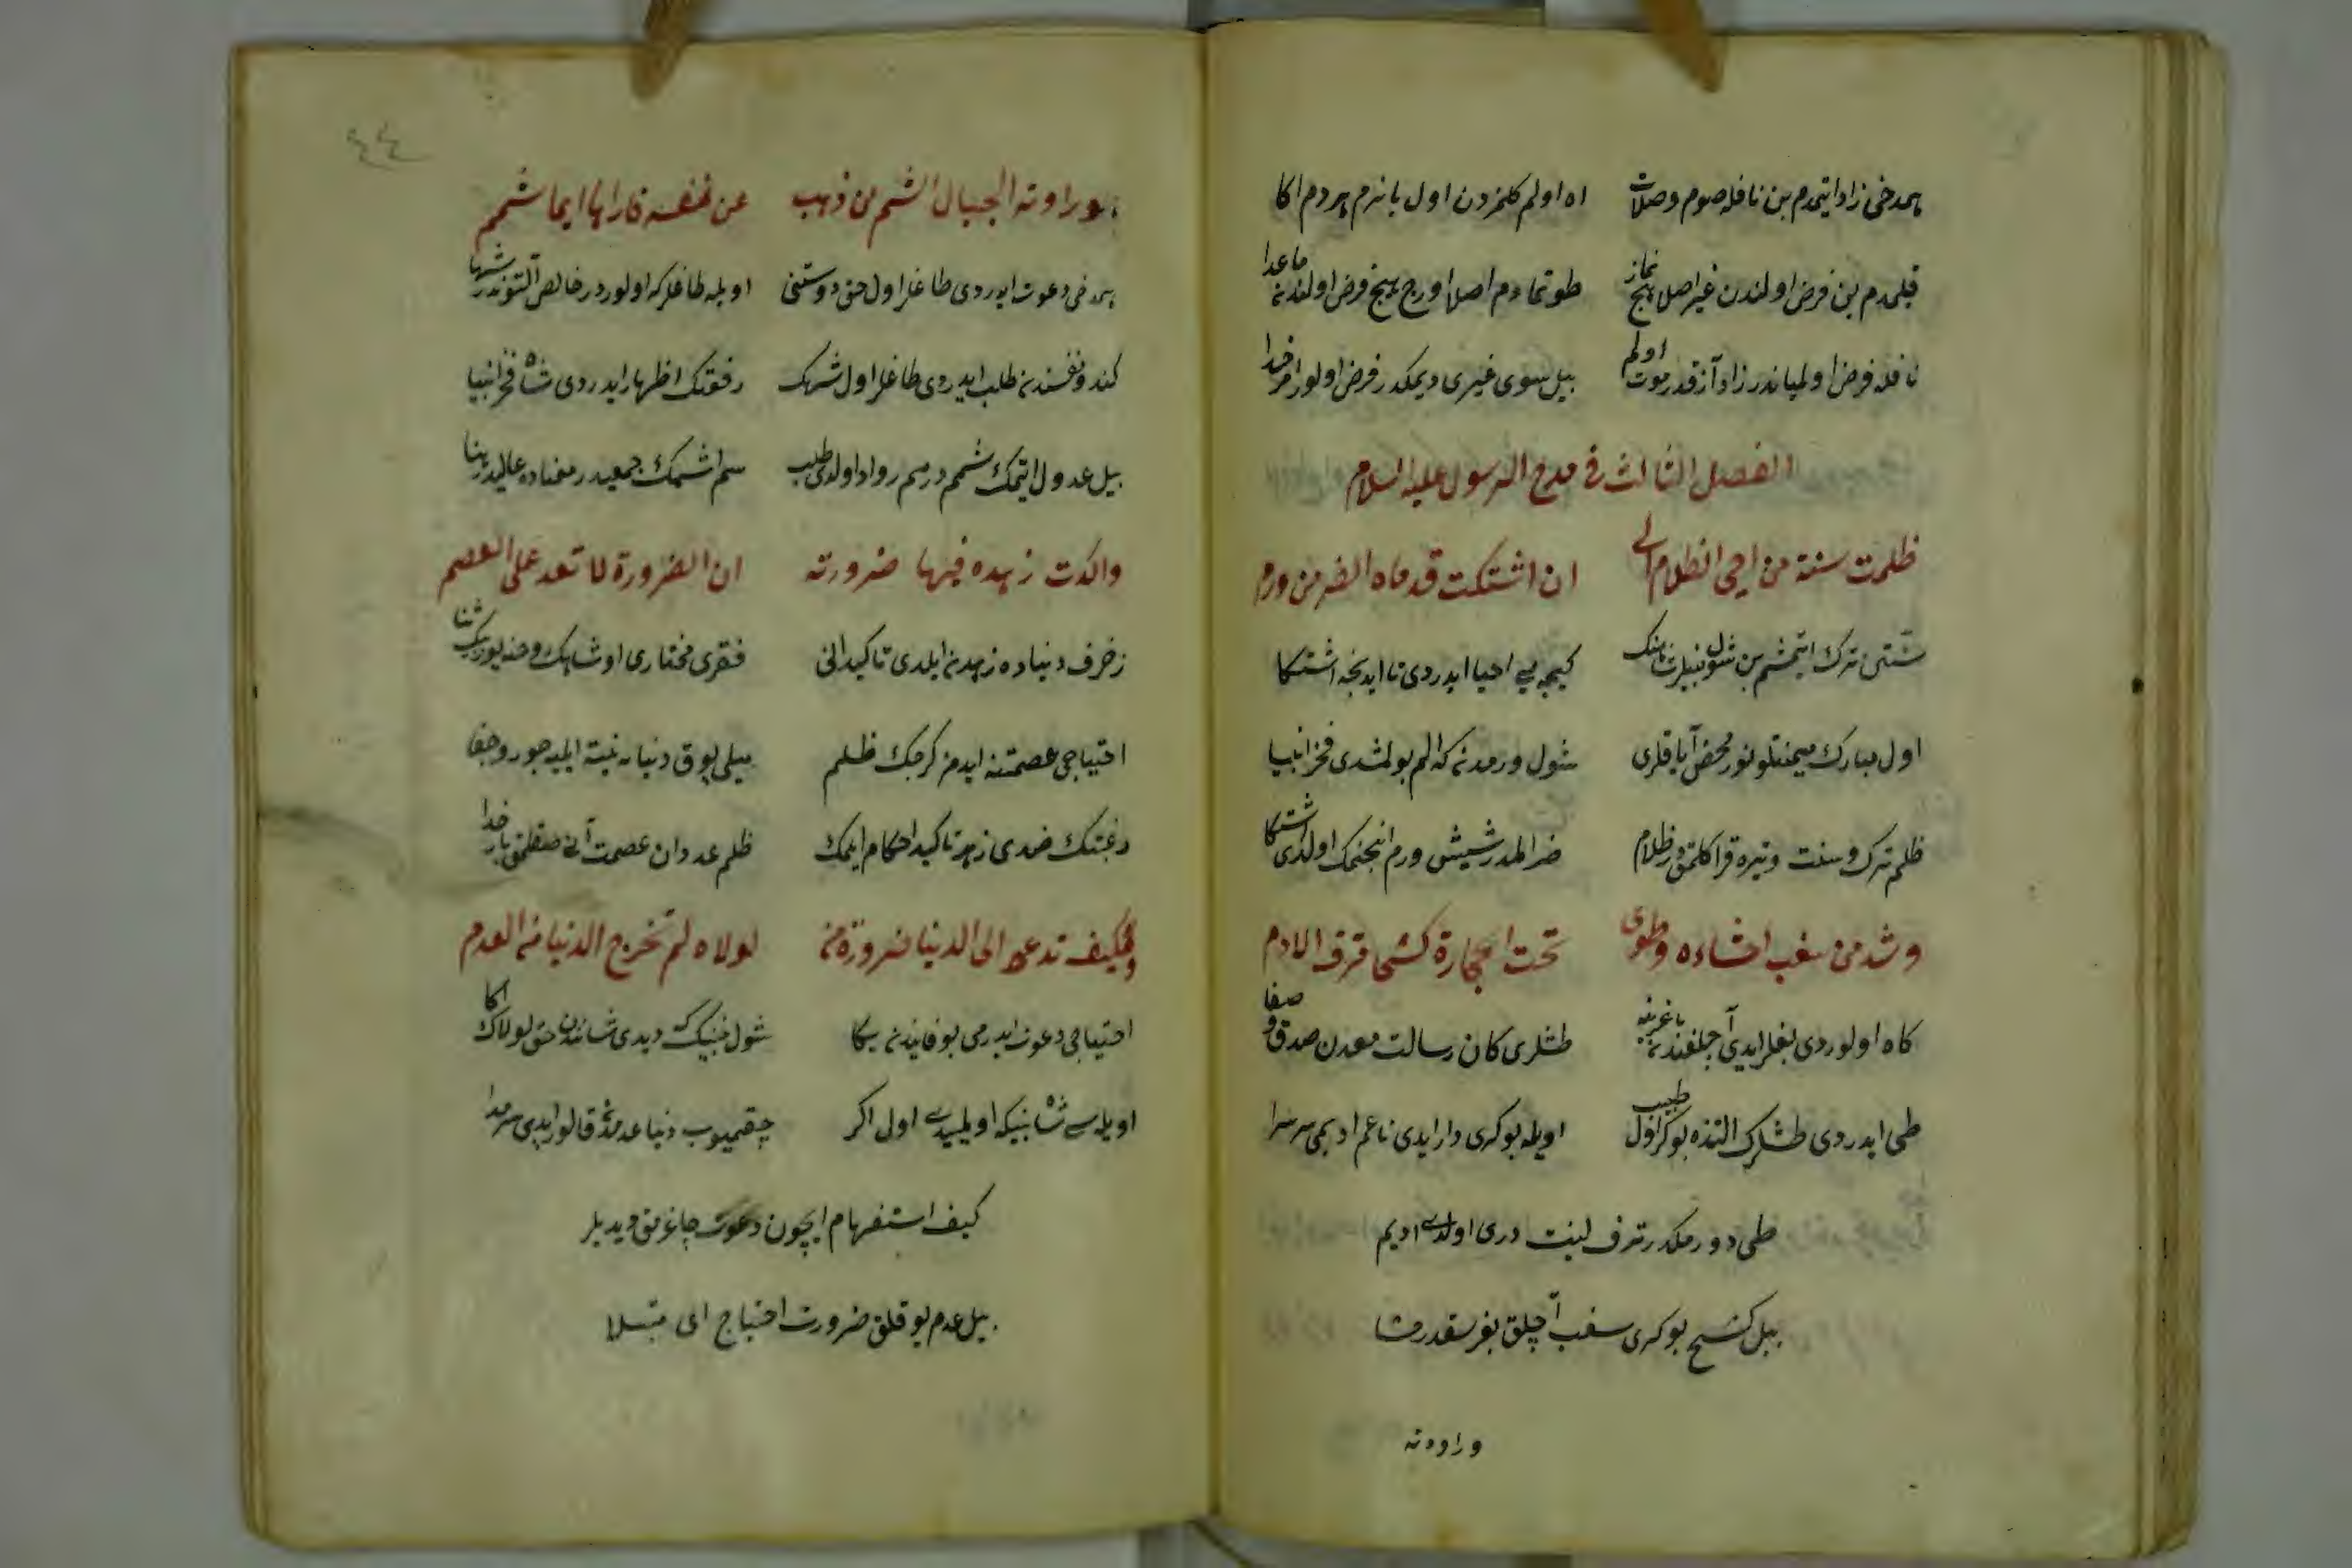 هم دخی زاد ایتمدم بن نافله صوم وصلات اه اولم کلمزدن اول یانرم هر دم اکا
قیلمدم بن فرض اولندن غیر اصلا هیچ نماز طوتمادم اصلا اورج هیچ فرض اولندنه ماعدا
نافله فرض اولمیاندر زاد آزقدر موت اولم بیل سوی غیری دیمکدر فرض اولور امر خدا
الفصل الثالث فی مدح الرسول علیه السلام
ظلمت سنة من احی الظلام الی ان اشتکت قدماه الضر من ورم
سنتی ترک ایتمشم بن شول کیجه یی احیا ایدردی تا ایدنجه اشتکا
اول مبارک میمنتلو نور محض آیاقلری شول ورمدنه که الم بولمشدی فخر انبیا
ظلم ترک وسنت وتیره قراکلقدر ظلام ضر المدر شیش ورم انجنمک اولدی اشتکا
وشد من سغب احشاءه وطوی تحت الحجارة کشحا مترف الادم
کاه اولوردی بغلر ایدی آجلغندنه باغرینه طشلری کان رسالت معدن صدق و صفا
طی ایدردی طشلرک التنده بوکر اول طبیب اویله بوکری وار ایدی ناعم ادیمی سرسرا
طی دورمکدر مترف لینت دری اولدی ادیم
بیل کشح بوکری سغب آچلق بغرسقدر حشا
وراودته
وراودته الجبال الشم من ذهب عن نفسه فاراها ایما شمم
هم دخی دعوت ایدردی طاغلر اول حق دوستنی اویله طاغلر که اولوردر خالص التوندر شها
کندو نفسندنه طلب ایدردی طاغلر اول شهک رفعتک اظهار ایدردی شاه فخر انبیا
بیل عدول ایتمک شمم در هم رواد اولدی طلب سم اشمک جمعیدر معناده عالیدر بنا
واکدت زهده فیها ضرورته ان الضرورة لا تعد علی العصم
زخرف دنیاده زهدنه ایلدی تاکید انی فقری مختاری او شاهک روحنه یوز بیک ثنا
احتیاجی عصمتنه ایدمز کرچک ظلم میلی یوق دنیایه نیته ایلیه جور وجفا
رغبتک ضدی زهد تاکید احکام ایلمک ظلم عدوان عصمت آنی صقلمق یار خدا
وکیف تدعو الی الدنیا ضرورة من لولاه لم تخرج الدنیا من العدم
احتیاجی دعوت ایدرمی بو فانیدنه یکا شول نبینک که دیدی شاننده حق لولاک اکا
اویله شاه نبینکه اولمیدی اول اکر چقمیوب دنیا عدمده قالور ایدی سرمدا
کیف استفهام ایچون دعوت چاغرمق دیدیلر
بیل عدم یوقلق ضرورت احتیاج ای مبتلا
٤٤